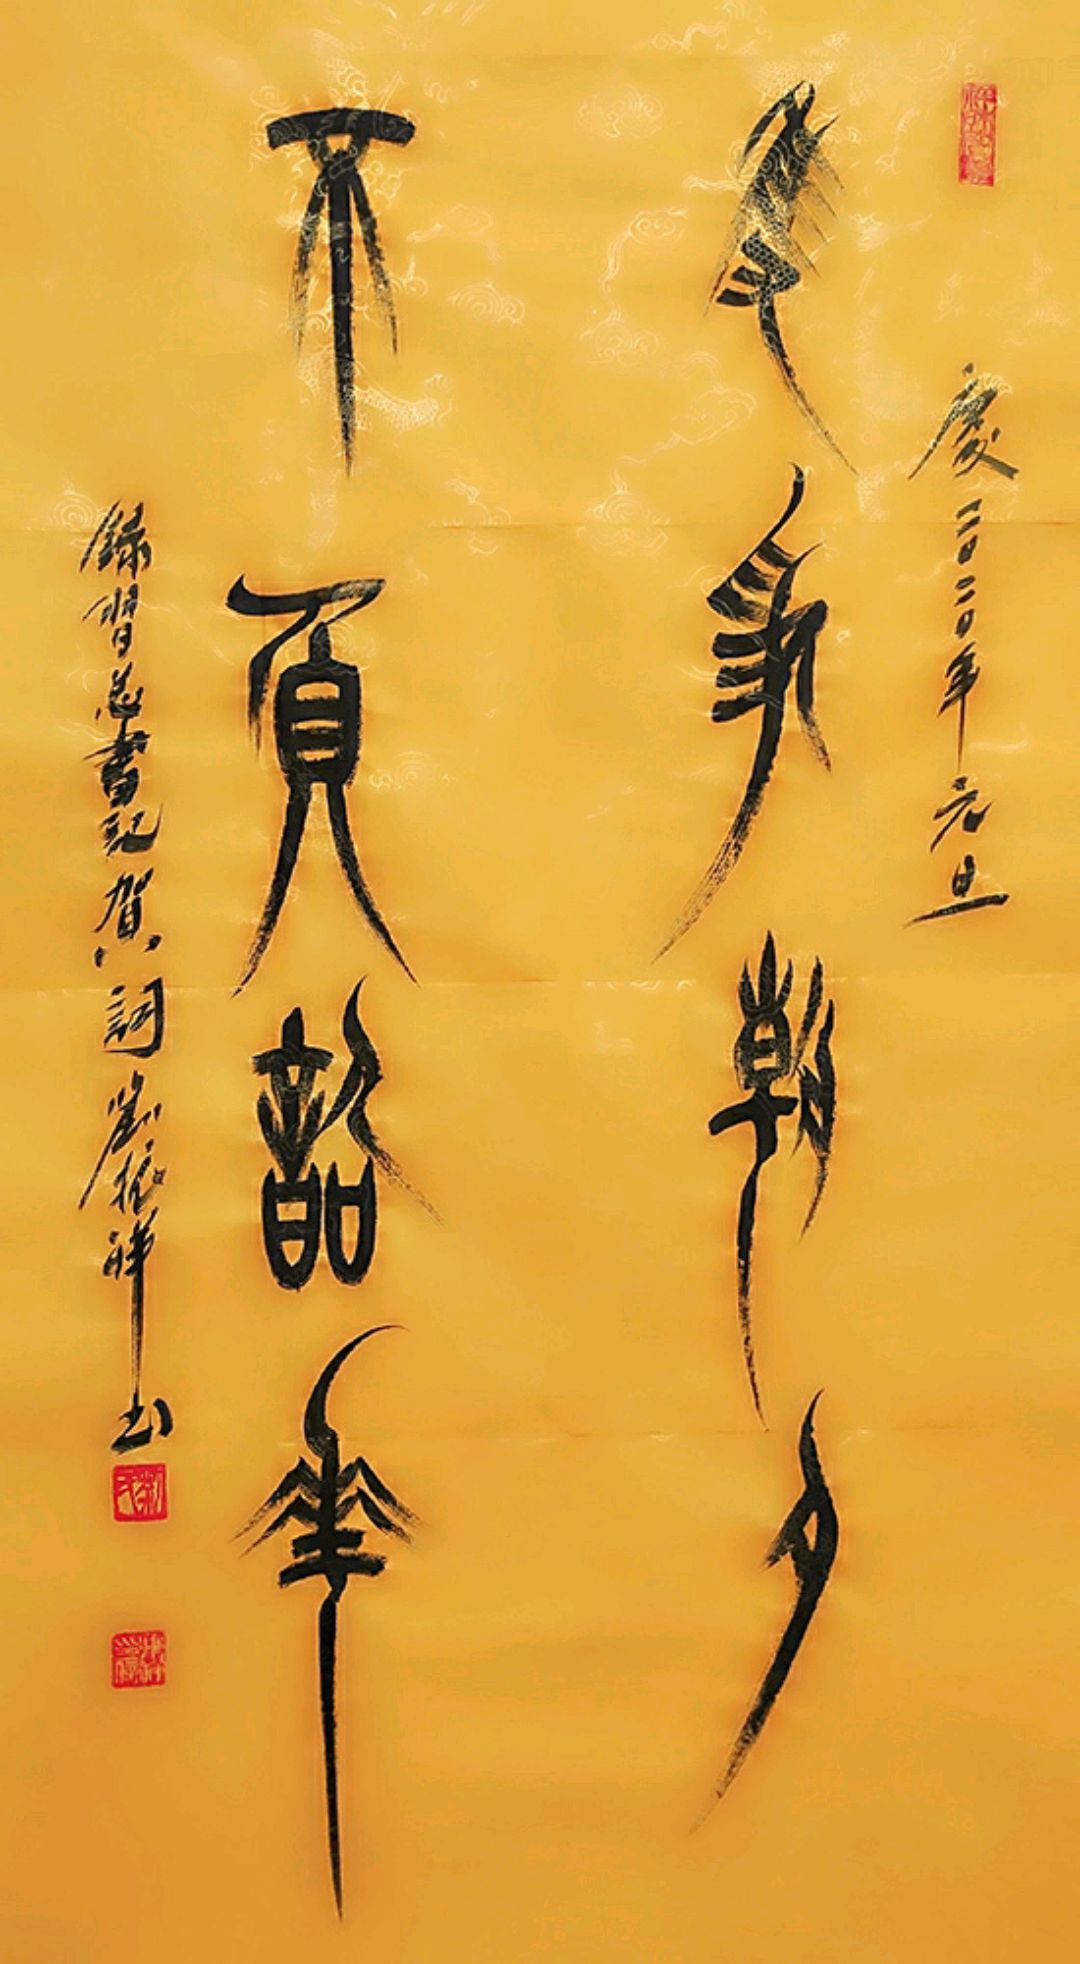 慶二〇二〇年元旦
隻爭朝夕
不負韶華
錄習总書記賀詞 劉振祥书